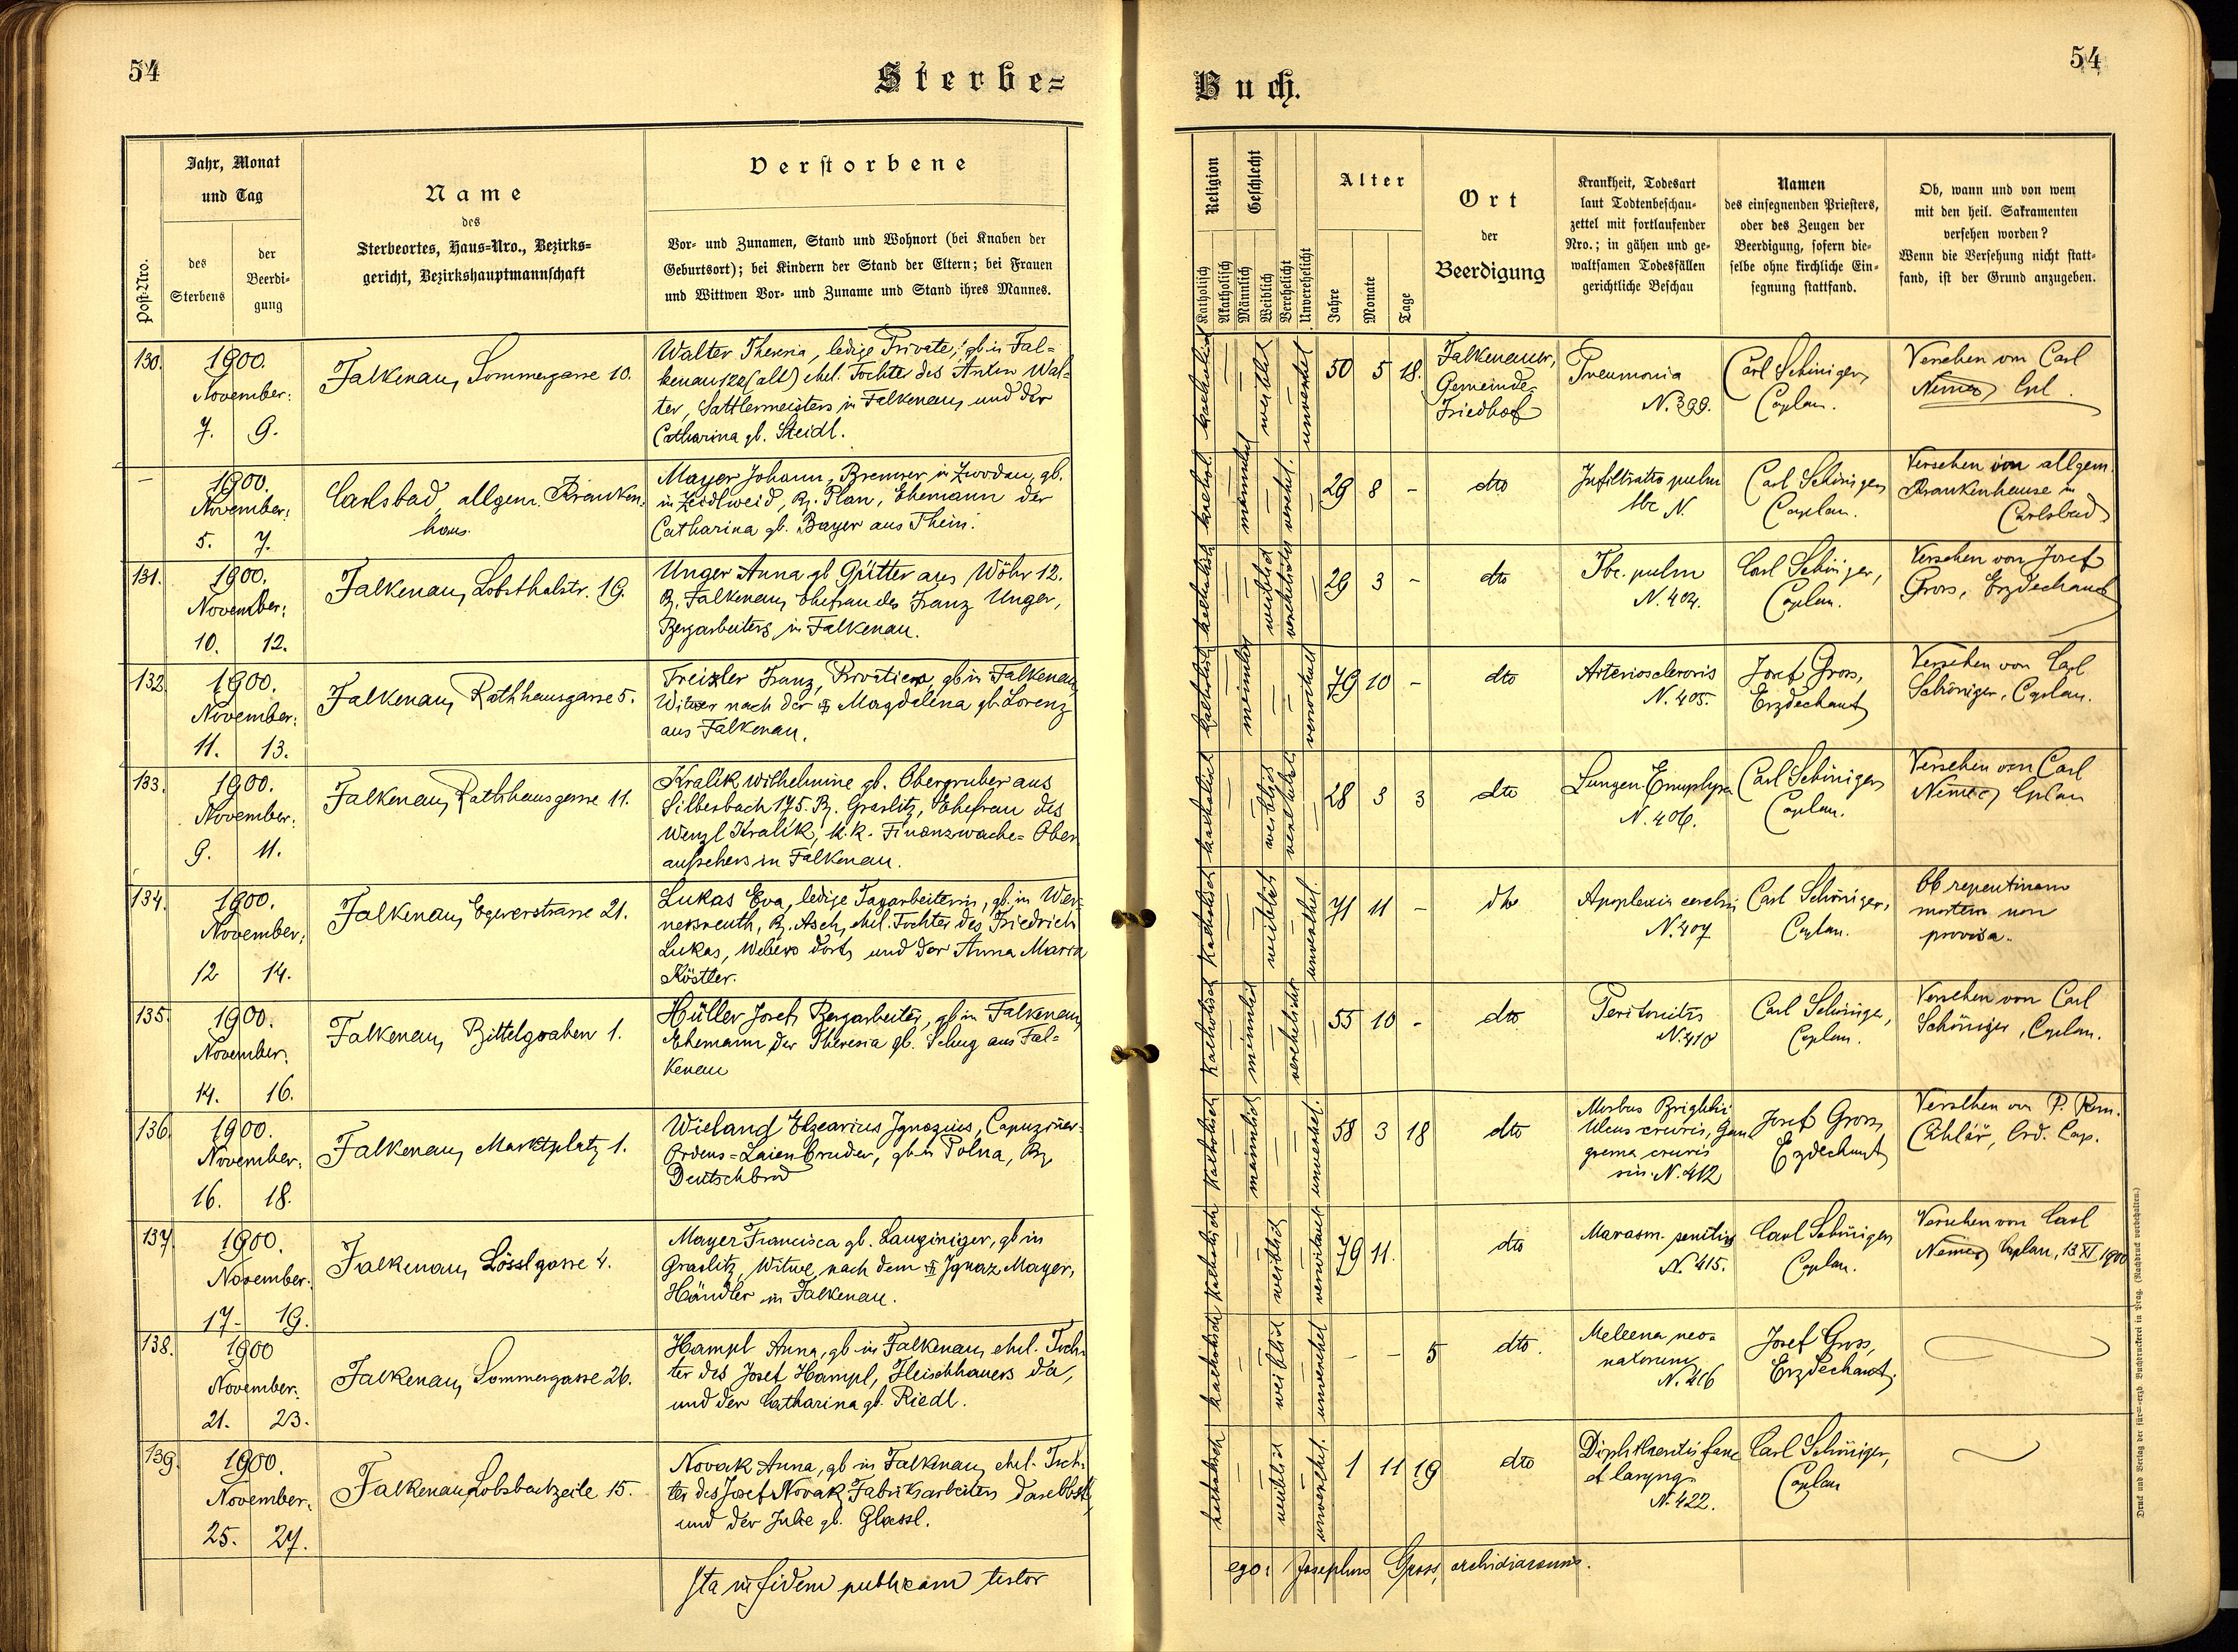 54
Sterbe-
Jahr, Monat
und Tag
Name
des
Sterbeortes, Haus-Nro., Bezirks-
gericht, Bezirkshauptmannschaft
Verstorbene
Post-Nro.
des
Sterbens
der
Beerdi-
gung
Vor- und Zunamen, Stand und Wohnort (bei Knaben der
Geburtsort); bei Kindern der Stand der Eltern; bei Frauen
und Wittwen Vor- und Zuname und Stand ihres Mannes.
130.
1900.
November:
7. 9.
Falkenau, Sommergasse 10.
Walter Theresia, ledige Private, gb in Fal-
kenau 122 (alt) ehel. Tochter des Anton Wal-
ter, Sattlermeisters in Falkenau, und der
Catharina gb. Steidl.
—
1900.
November:
5. 7.
Carlsbad, allgem. Kranken-
haus.
Mayer Johann, Brenner in Zwodau, gb.
in Zeidlweid, Bz. Plan, Ehemann der
Catharina gb. Bayer aus Thein.
131.
1900.
November:
10. 12.
Falkenau, Lobsthalstr. 19.
Unger Anna gb Gütter aus Wöhr 12.
Bz. Falkenau, Ehefrau des Franz Unger,
Bergarbeiters, in Falkenau.
132.
1900.
November:
11. 13.
Falkenau, Rathhausgasse 5.
Treixler Franz, Privatier, gb in Falkenau,
Witwer nach der Magdalena gb Lorenz
aus Falkenau.
133.
1900.
November:
9. 11.
Falkenau, Rathhausgasse 11.
Kralik Wilhelmine gb. Obergruber aus
Silberbach 175. Bz. Graslitz, Ehefrau des
Wenzl Kralik, k.k. Finanzwache-Ober
aufsehers in Falkenau.
134.
1900.
November:
12 14.
Falkenau, Egererstrasse 21.
Lukas Eva, ledige Tagarbeiterin, gb. in Wer-
nersreuth, Bz. Asch, ehel. Tochter des Friedrich
Lukas, Webers dort, und der Anna Maria
Köstler.
135.
1900.
November.
14. 16.
Falkenau, Bittelgraben 1.
Hüller Josef, Bergarbeiter, gb in Falkenau,
Ehemann der Theresia gb. Schug aus Fal-
kenau
136.
1900.
November.
16. 18.
Falkenau, Marktplatz 1.
Wieland Elzearius Ignazius, Capuziner-
Ordens-Laienbruder, gb in Polna, Bz.
Deutschbrod
137.
1900.
November.
17. 19.
Falkenau, Lösslgasse 4.
Mayer Francisca gb. Langiniger, gb in
Graslitz, Witwe nach dem Ignaz Mayer,
Händler in Falkenau.
138.
1900
November.
21. 23.
Falkenau, Sommergasse 26.
Hampl Anna, gb in Falkenau, ehel. Toch-
ter des Josef Hampl, Fleischhauers da,
und der Catharina gb. Riedl.
139.
1900.
November.
25. 27.
Falkenau, Lobsbachzeile 15.
Novak Anna, gb in Falkenau, ehel. Toch-
ter des Josef Novak, Fabriksarbeiters daselbst,
und der Julie gb. Glassl.
Ita in fidem publicam testor
Buch.
54
Religion
Geschlecht
Alter
Ort
der
Beerdigung
Krankheit, Todesart
laut Todtenbeschau-
zettel mit fortlaufender
Nro.; in gähen und ge-
waltsamen Todesfällen
gerichtliche Beschau
Namen
des einsegnenden Priesters,
oder des Zeugen der
Beerdigung, sofern die-
selbe ohne kirchliche Ein-
segnung stattfand.
Ob, wann und von wem
mit den heil. Sakramenten
versehen worden?
Wenn die Versehung nicht statt-
fand, ist der Grund anzugeben.
Katholisch
Akatholisch
Männlich
Weiblich
Verehelicht
Unverehelicht
Jahre
Monate
Tage
katholisch weiblich unverehel
50 5 18.
Falkenauer,
Gemeinde-
Friedhof
Pneumonia
N. 399.
Carl Schöniger,
Caplan.
Versehen von Carl
Němec, Cpl.
kathol. männlich verehel.
29 8 -
dto
Infiltratio pulm
tbc N.
Carl Schöniger,
Caplan.
Versehen im allgem.
Krankenhause in
Carlsbad
katholisch weiblich verehelicht
29 3 -
dto
Tbc. pulm
N. 404.
Carl Schöniger,
Caplan.
Versehen von Josef
Gross, Erzdechant
katholisch männlich verwitwet
79 10 -
dto
Arteriosclerosis
N. 405.
Josef Gross,
Erzdechant
Versehen von Carl
Schöniger, Caplan.
katholisch weiblich verehelicht
28 3 3
dto
Lungen Emphysem
N. 406.
Carl Schöniger,
Caplan.
Versehen von Carl
Němec, Cplan
katholisch weiblich unverehel.
71 11 -
dto
Apoplexia cerebri
N. 407
Carl Schöniger,
Caplan.
Ob repentinam
mortem non
provisa.
katholisch männlich verehelicht
55 10 -
dto
Peritonitis
N. 410
Carl Schöniger,
Caplan.
Versehen von Carl
Schöniger, Caplan.
katholisch männlich unverehel.
58 3 18
dto
Morbus Brightii
Ulcus cruris, Gan
grena cruris
sin. N. 412
Josef Gross,
Erzdechant
Versehen von P. Rem.
Cihlář, Ord. Cap.
katholisch weiblich verwitwet
79 11.
dto
Marasm. senilis
N. 415.
Carl Schöniger,
Caplan.
Versehen von Carl
Němec, Caplan, 13 XI. 1900
katholisch weiblich unverehel
- - 5
dto.
Meleena neo-
natorum,
N. 416
Josef Gross,
Erzdechant.
katholisch weiblich unverehel.
1 11 19
dto
Diphtheritis fauc
et laryng.
N. 422.
Carl Schöniger,
Caplan
ego: Josephus Gross, archidiaconus.
Druck und Verlag der fürst-erzb. Buchdruckerei in Prag. (Nachdruck vorbehalten.)